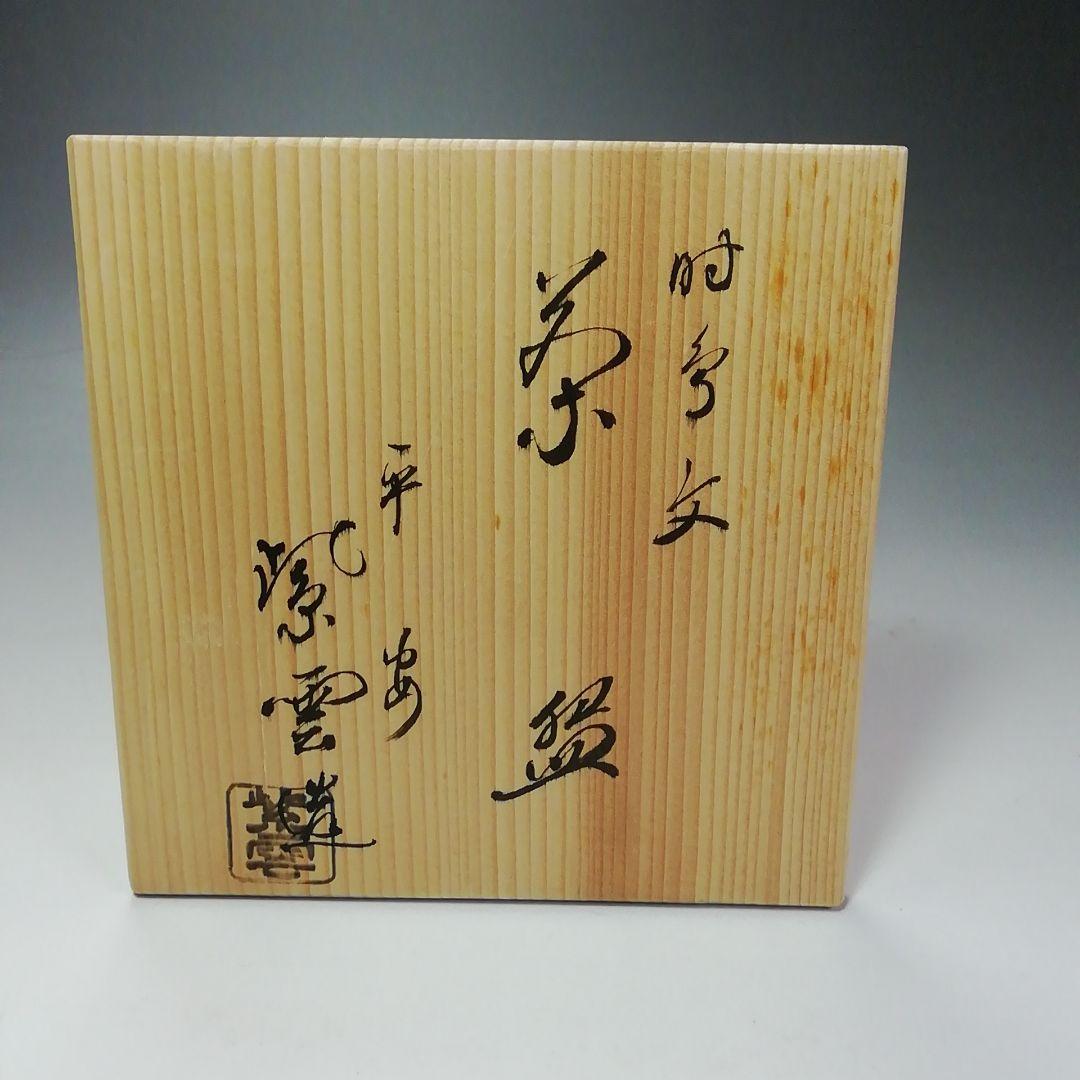 時鳥文
茶盌
平安
紫雲造
紫雲